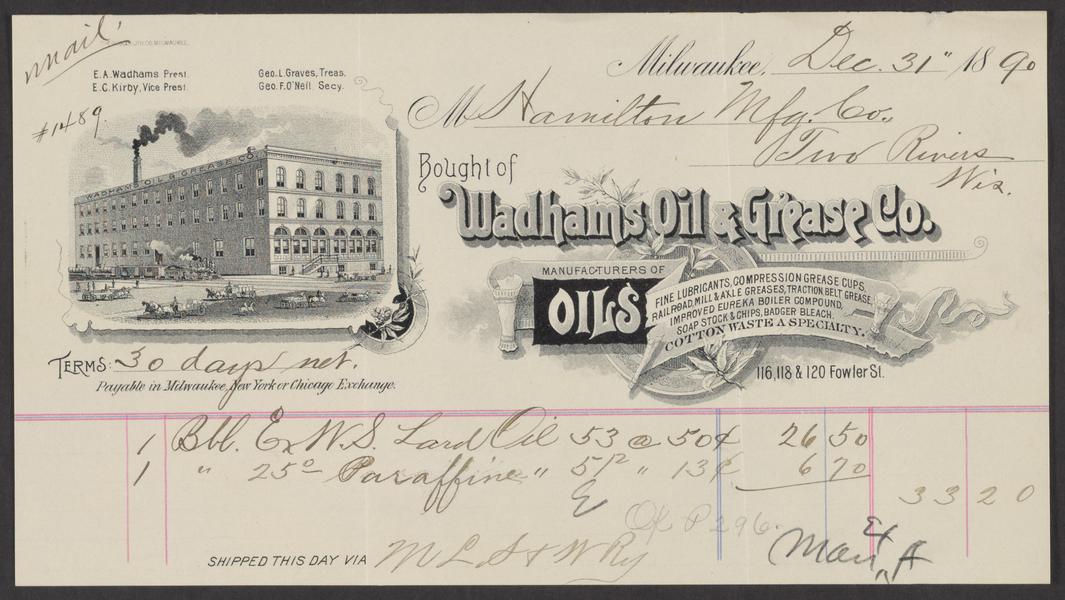 mail
E. A. Wadhams Prest.
E. C. Kirby, Vice Prest.
Geo. L. Graves, Treas.
Geo. F. O'Neil Secy.
#1489.
WADHAMS OIL & GREASE CO.
Milwaukee, Dec. 31" 1890
M Hamilton Mfg. Co.,
Two Rivers
Wis.
Bought of
Wadhams Oil & Grease Co.
MANUFACTURERS OF
OILS
FINE LUBRICANTS, COMPRESSION GREASE CUPS,
RAILROAD, MILL & AXLE GREASES, TRACTION BELT GREASE,
IMPROVED EUREKA BOILER COMPOUND,
SOAP STOCK & CHIPS, BADGER BLEACH.
COTTON WASTE A SPECIALTY.
116, 118 & 120 Fowler St.
TERMS: 30 days net.
Payable in Milwaukee, New York or Chicago Exchange.
1 Bbl. Ex W. S. Lard Oil 53 @ 50¢ 26 50
1 " 25° Paraffine " 51½ " 13¢ 6 70
33 20
OK P 296.
SHIPPED THIS DAY VIA M L S & W Ry